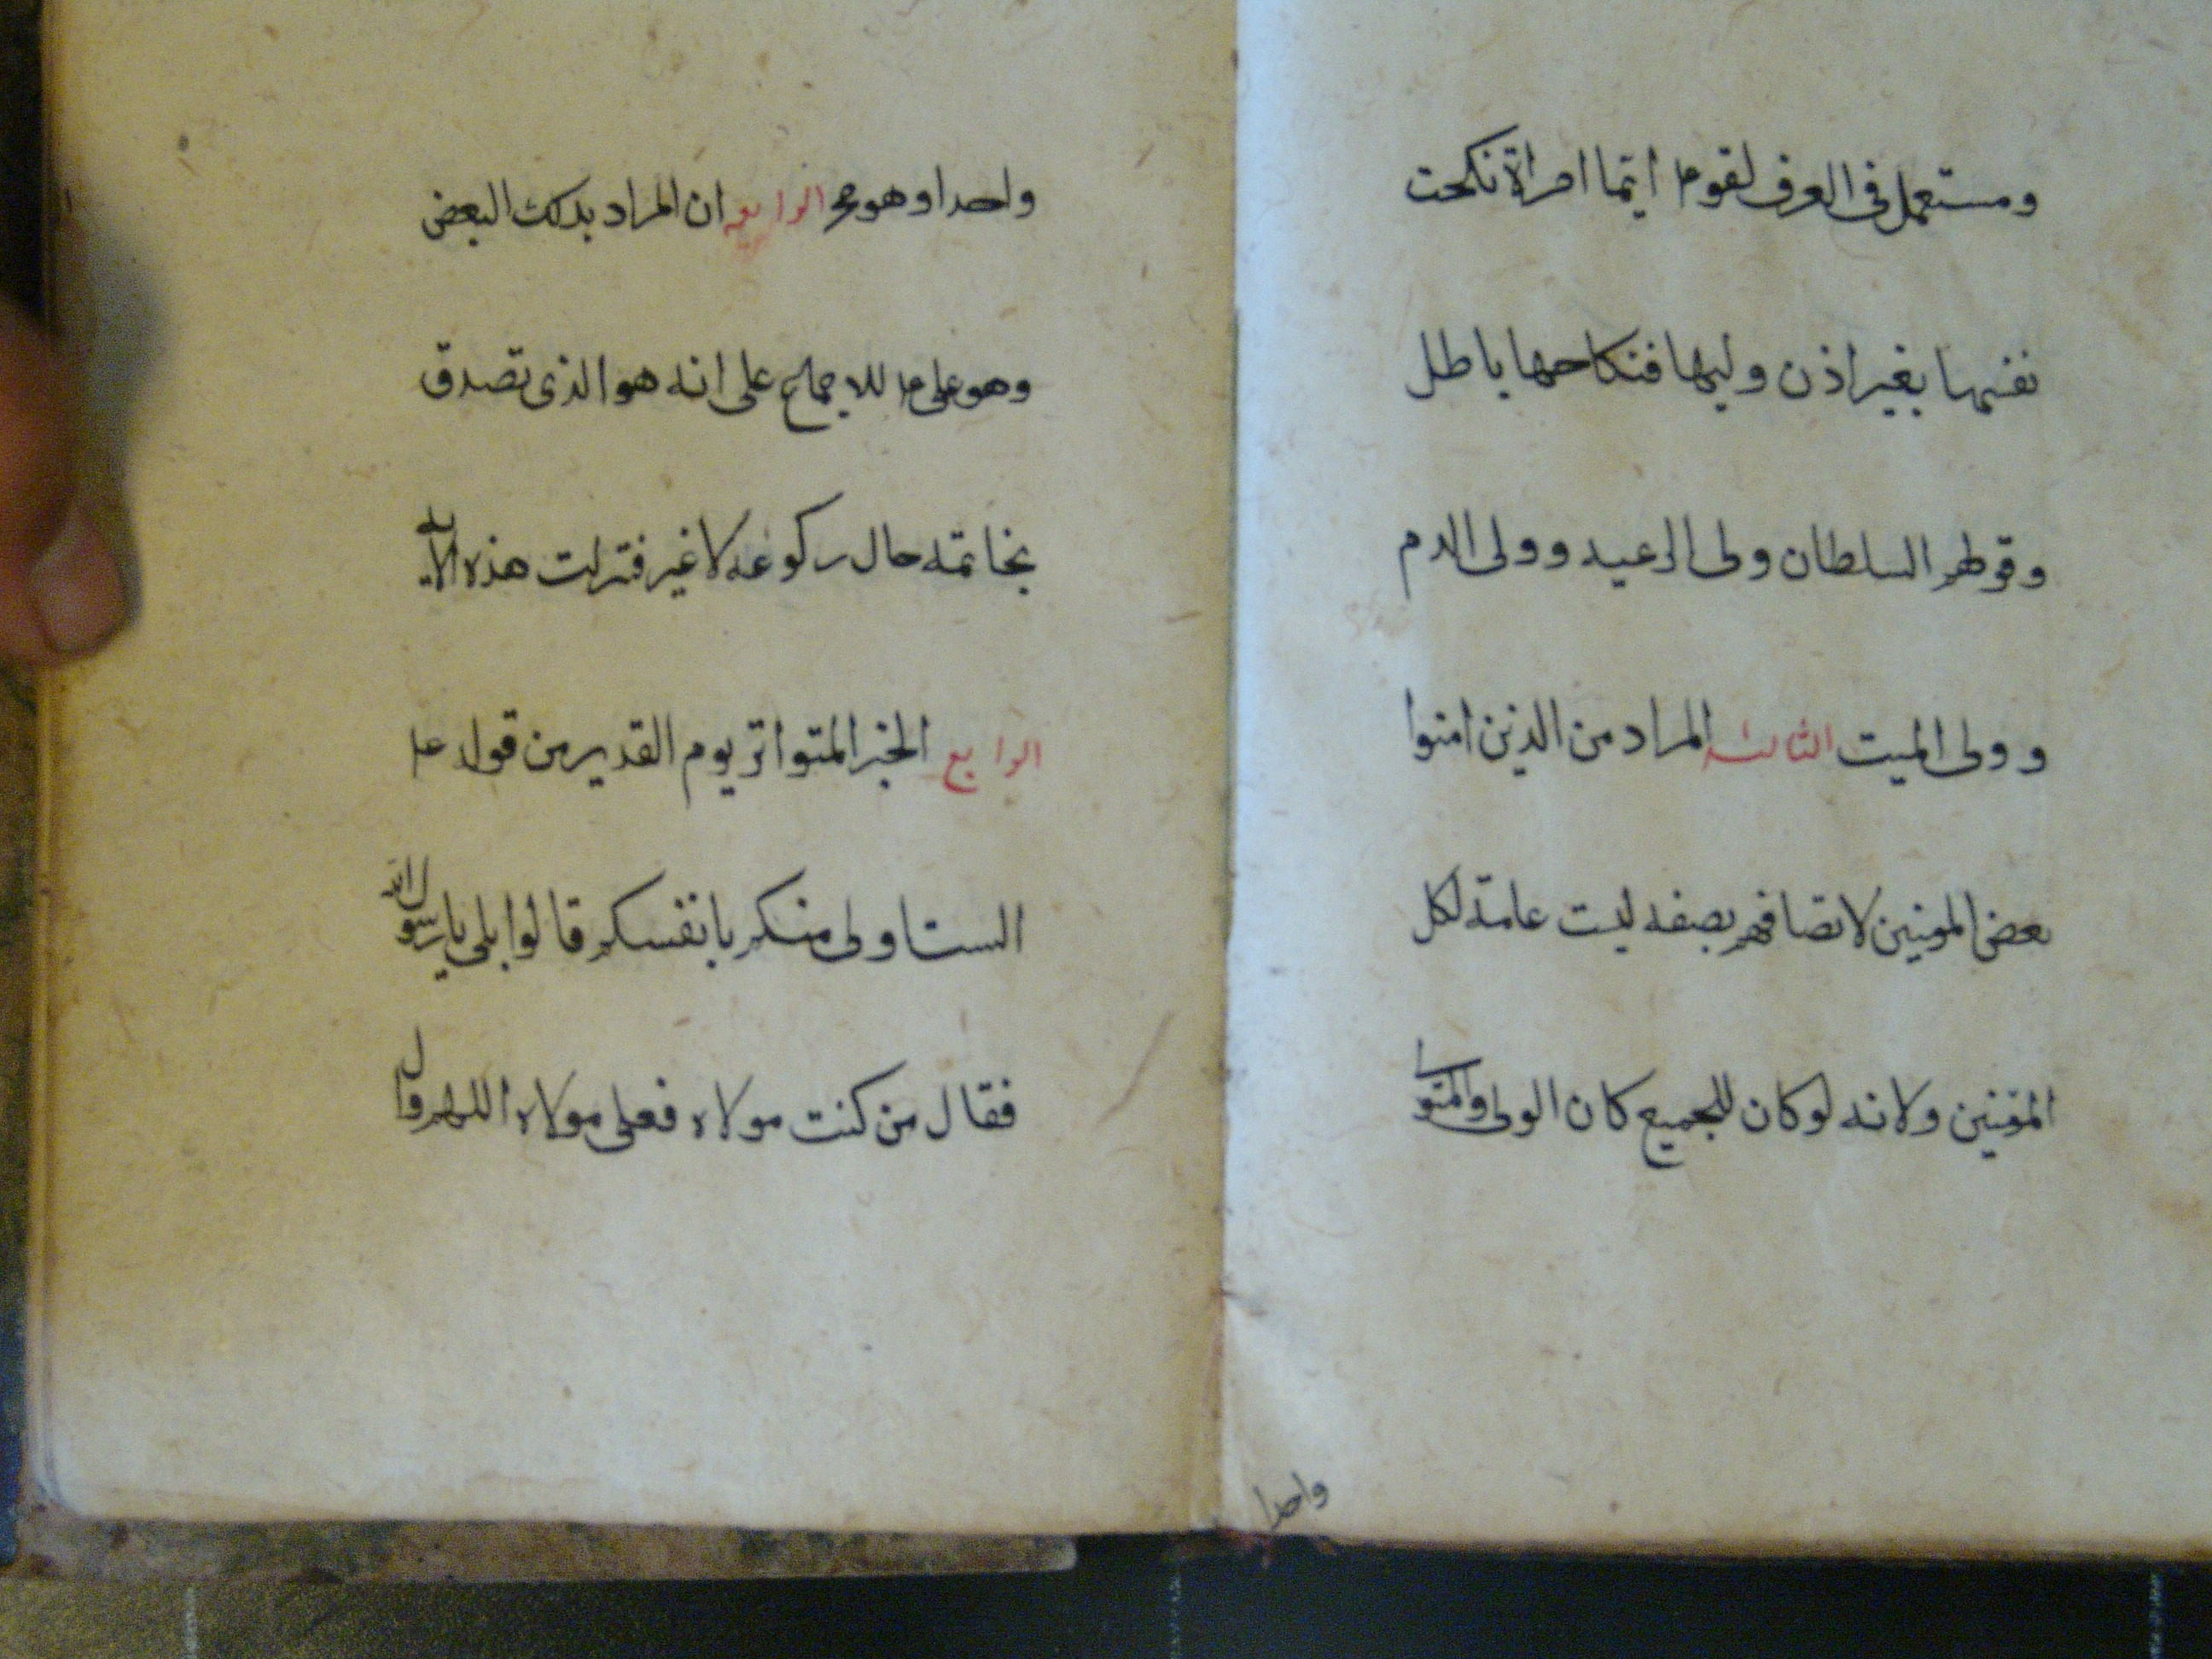 ومستعمل فى العرف لقوم ايما امراة نكحت
نفسها بغير اذن وليها فنكاحها باطل
وقولهم السلطان ولى الرعيه وولى الدم
وولى الميت الثالثه المراد من الذين امنوا
بعض المومنين لاتصافهم بصفه ليست عامة لكل
المؤمنين ولانه لو كان للجميع كان الولى والمتولى
واحدا
واحدا وهو مح الرابعه ان المراد بذلك البعض
وهو على للاجماع على انه هو الذى تصدق
بخاتمه حال ركوعه لا غير فنزلت هذه الايه
الرابع الخبر المتواتر يوم الغدير من قوله ع
الست اولى منكم بانفسكم قالوا بلى يا رسول الله
فقال من كنت مولاه فعلى مولاه اللهم وال